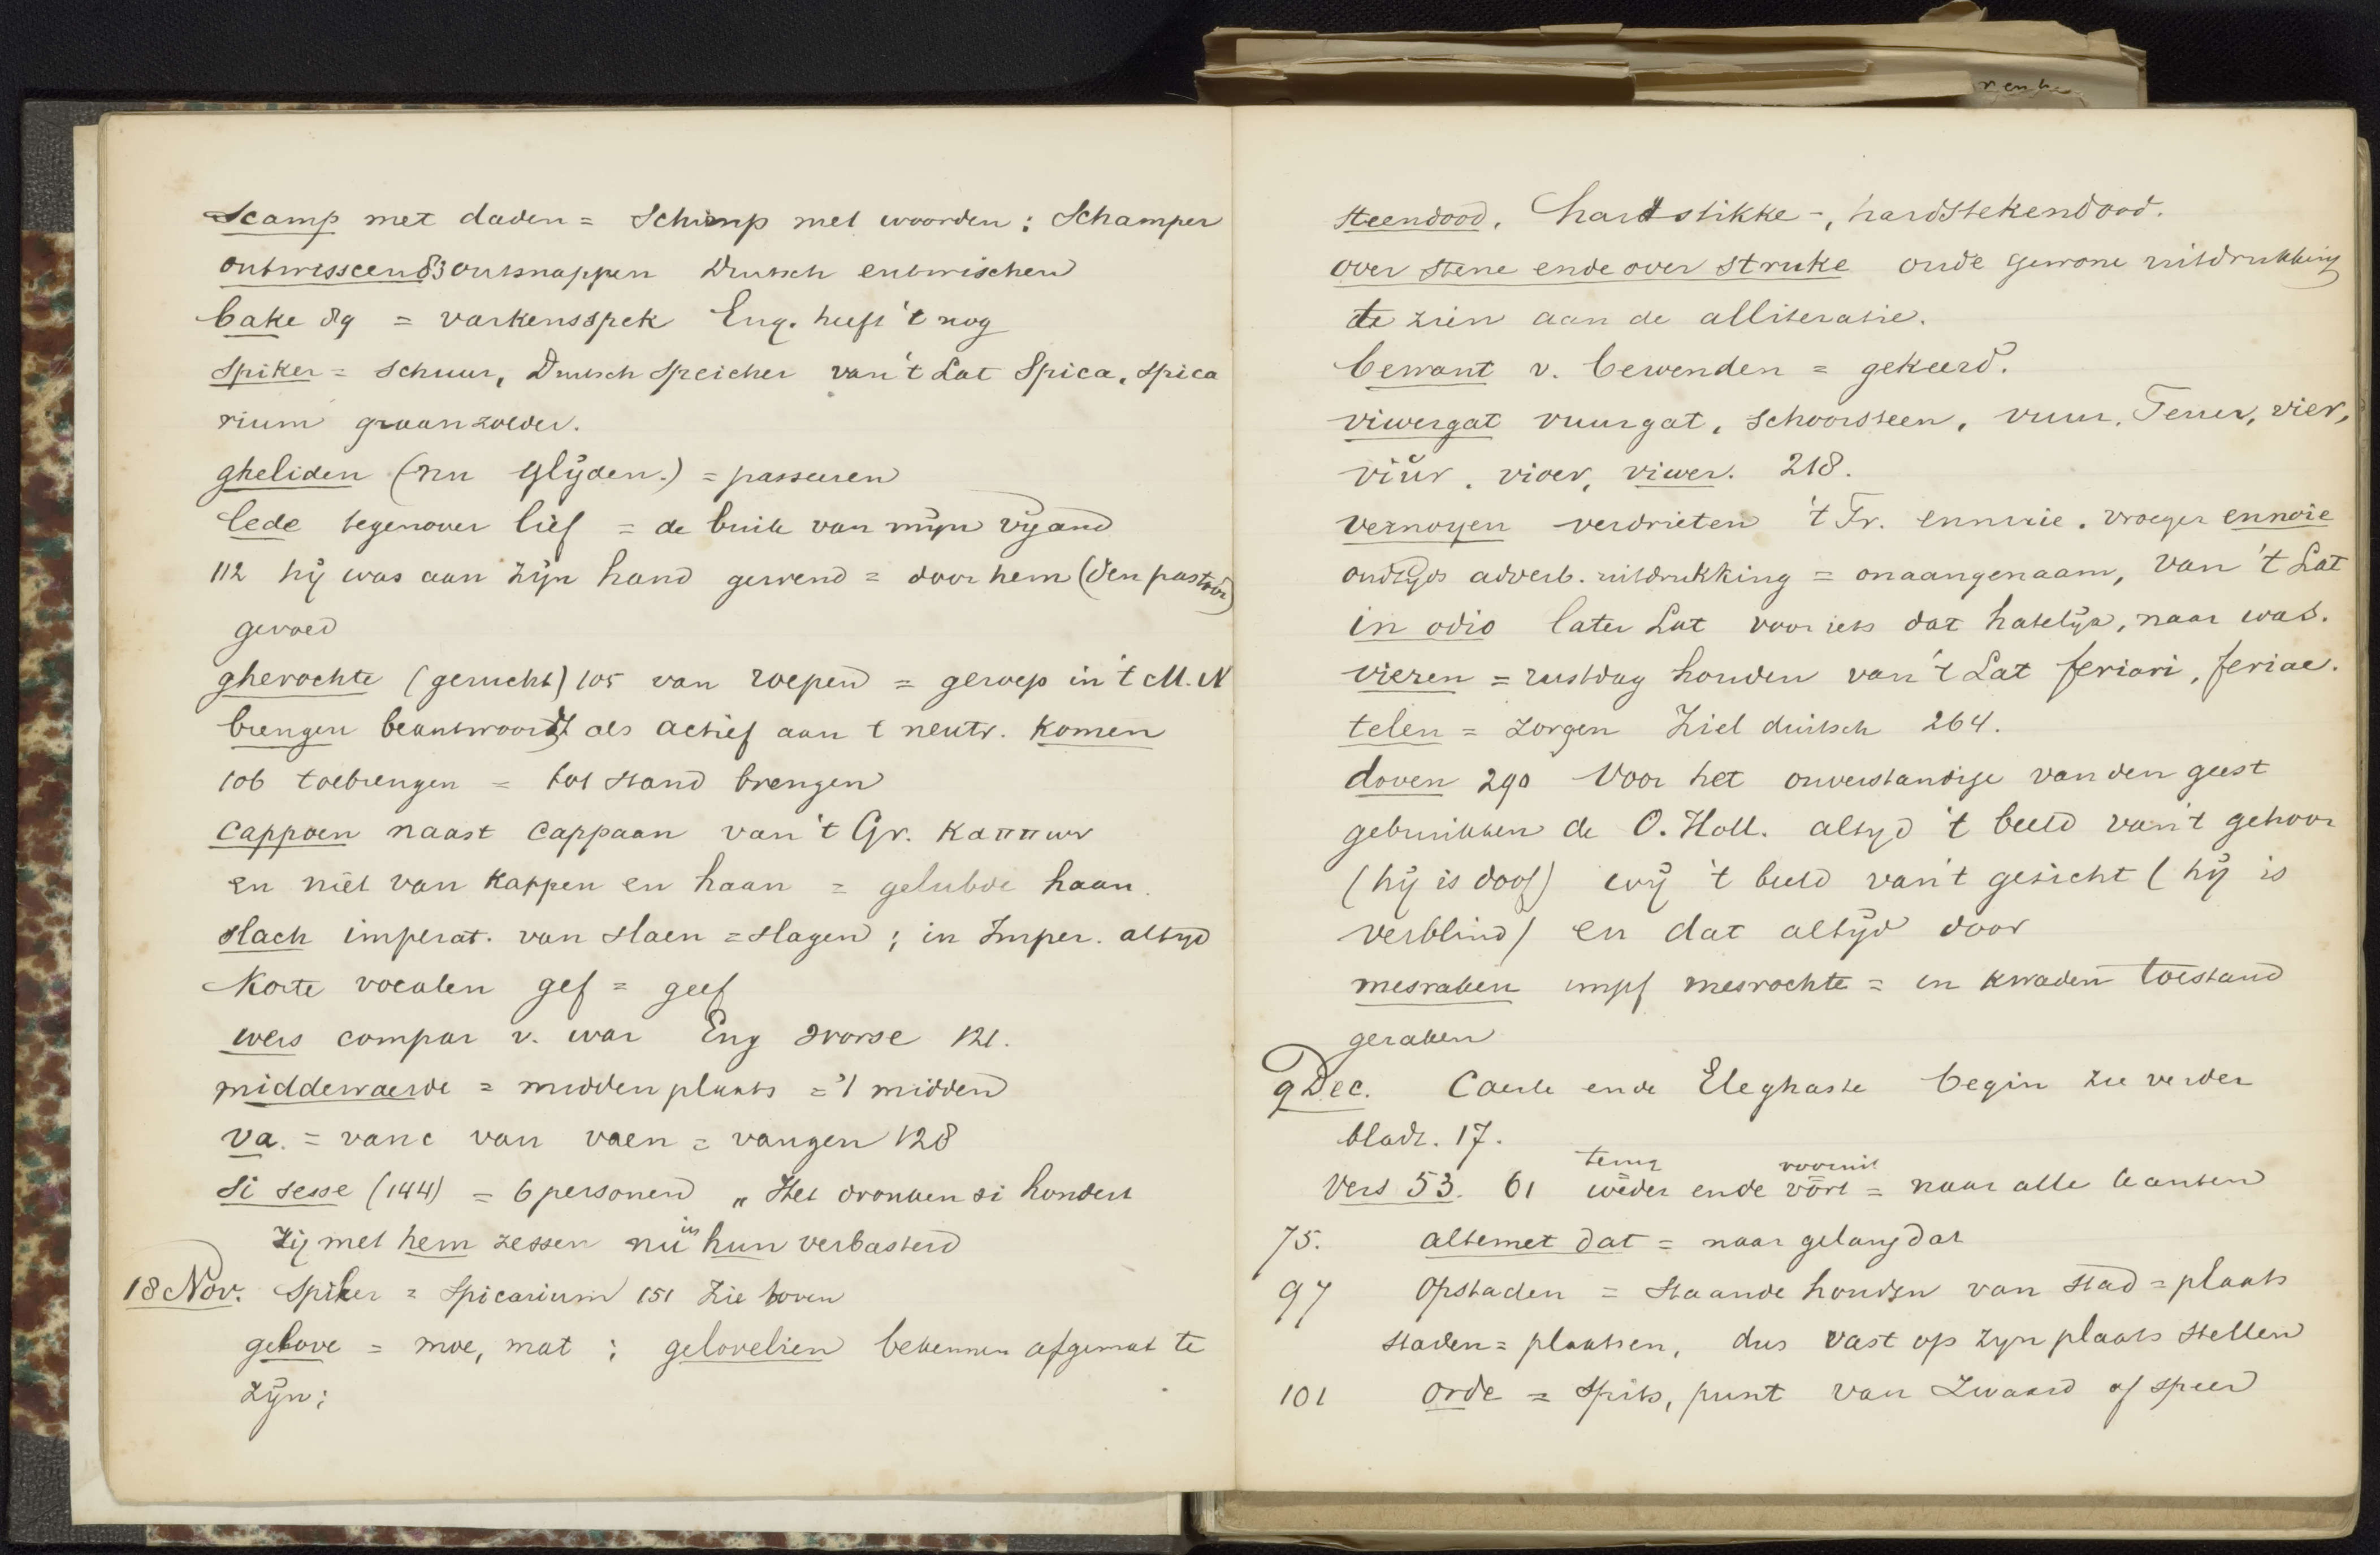 Scamp met daden = Schimp met woorden: Schamper
ontwisscen 83 ontsnappen Duitsch entwischen
bake 89 = varkensspek Eng. heeft 't nog
Spiker = schuur, Duitsch Speicher van 't Lat Spica, spica
rium graanzolder.
gheliden (nu glijden.) = passeeren
lede tegenover lief = de buik van mijn vijand
112 hij was aan zijn hand gewend = door hem (den pastoor)
gevoed
gherochte (gerucht) 105 van roepen = geroep in 't M. N
brengen beantwoordt als actief aan t neutr. komen
106 toebrengen = tot stand brengen
cappoen naast cappaan van 't Gr. καππων
en niet van kappen en haan = gelubde haan.
slach imperat. van slaen = slagen; in Imper. altijd
Korte vocalen gef = geef
wers compar v. war Eng worse 121.
middewaerde = midden plaats = 't midden
va. = vanc van vaen = vangen 128
si sesse (144) = 6 personen „ Het dronken si hondert
zij met hem zessen nu in hun verbasterd
18 Nov. Spiker = Spicarium 151 Zie boven
gelove = moe, mat; gelovelien bekennen afgemat te
zijn;
steendood, hardstikke-, hardstekendood.
over stene ende over struke oude gewone uitdrukking
te zien aan de alliteratie.
bewant v. bewenden = gekeerd.
viwergat vuurgat, schoorsteen, vuur, Feuer, vier,
viür, vioer, viwer. 218.
vernoyen verdrieten 't Fr. ennuie. vroeger ennoie
oudtijds adverb. uitdrukking = onaangenaam, van 't Lat
in odio later Lat voor iets dat hatelijk, naar was.
vieren = rustdag houden van 't Lat feriari, feriae.
telen = zorgen Ziel duitsch 264.
doven 290 Voor het onverstandige van den geest
gebruikken de O. Holl. altijd 't beeld van 't gehoor
(hij is doof) wij 't beeld van 't gezicht (hij is
verblind) en dat altijd door
mesraken impf mesrochte = in kwaden toestand
geraken
9 Dec. Caerle ende Eleghaste begin zie verder
bladz. 17.
terug vooruit
Vers 53. 61 weder ende vort = naar alle kanten
75. altemet dat = naar gelang dat
97 Opstaden = staande houden van stad = plaats
staden = plaatsen, dus vast op zijn plaats stellen
101 orde = spits, punt van zwaard of speer